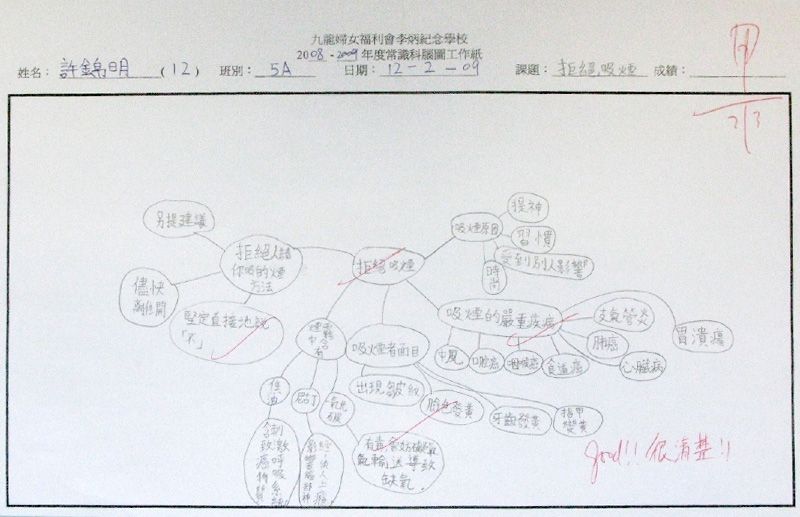 九龍婦女福利會李炳紀念學校
2008-2009年度常識科腦圖工作紙
姓名: 許錦明 (12) 班別: 5A 日期: 12-2-09 課題: 拒絕吸煙 成績:
甲
2/3
拒絕吸煙
另提建議
拒絕人請
你吸的煙
方法
儘快
離開
堅定直接地說
「不」
吸煙原因
提神
習慣
受到別人影響
時尚
吸煙的嚴重疾病
支氣管炎
胃潰瘍
肺癌
心臟病
中風
口腔癌
咽喉癌
食道癌
吸煙者面目
出現皺紋
臉色發黃
牙齒發黃
指甲
變黃
中含
有
焦
油
尼古丁
有毒,會妨礙
氧輸送導致
缺氧。
good!! 很清楚!!